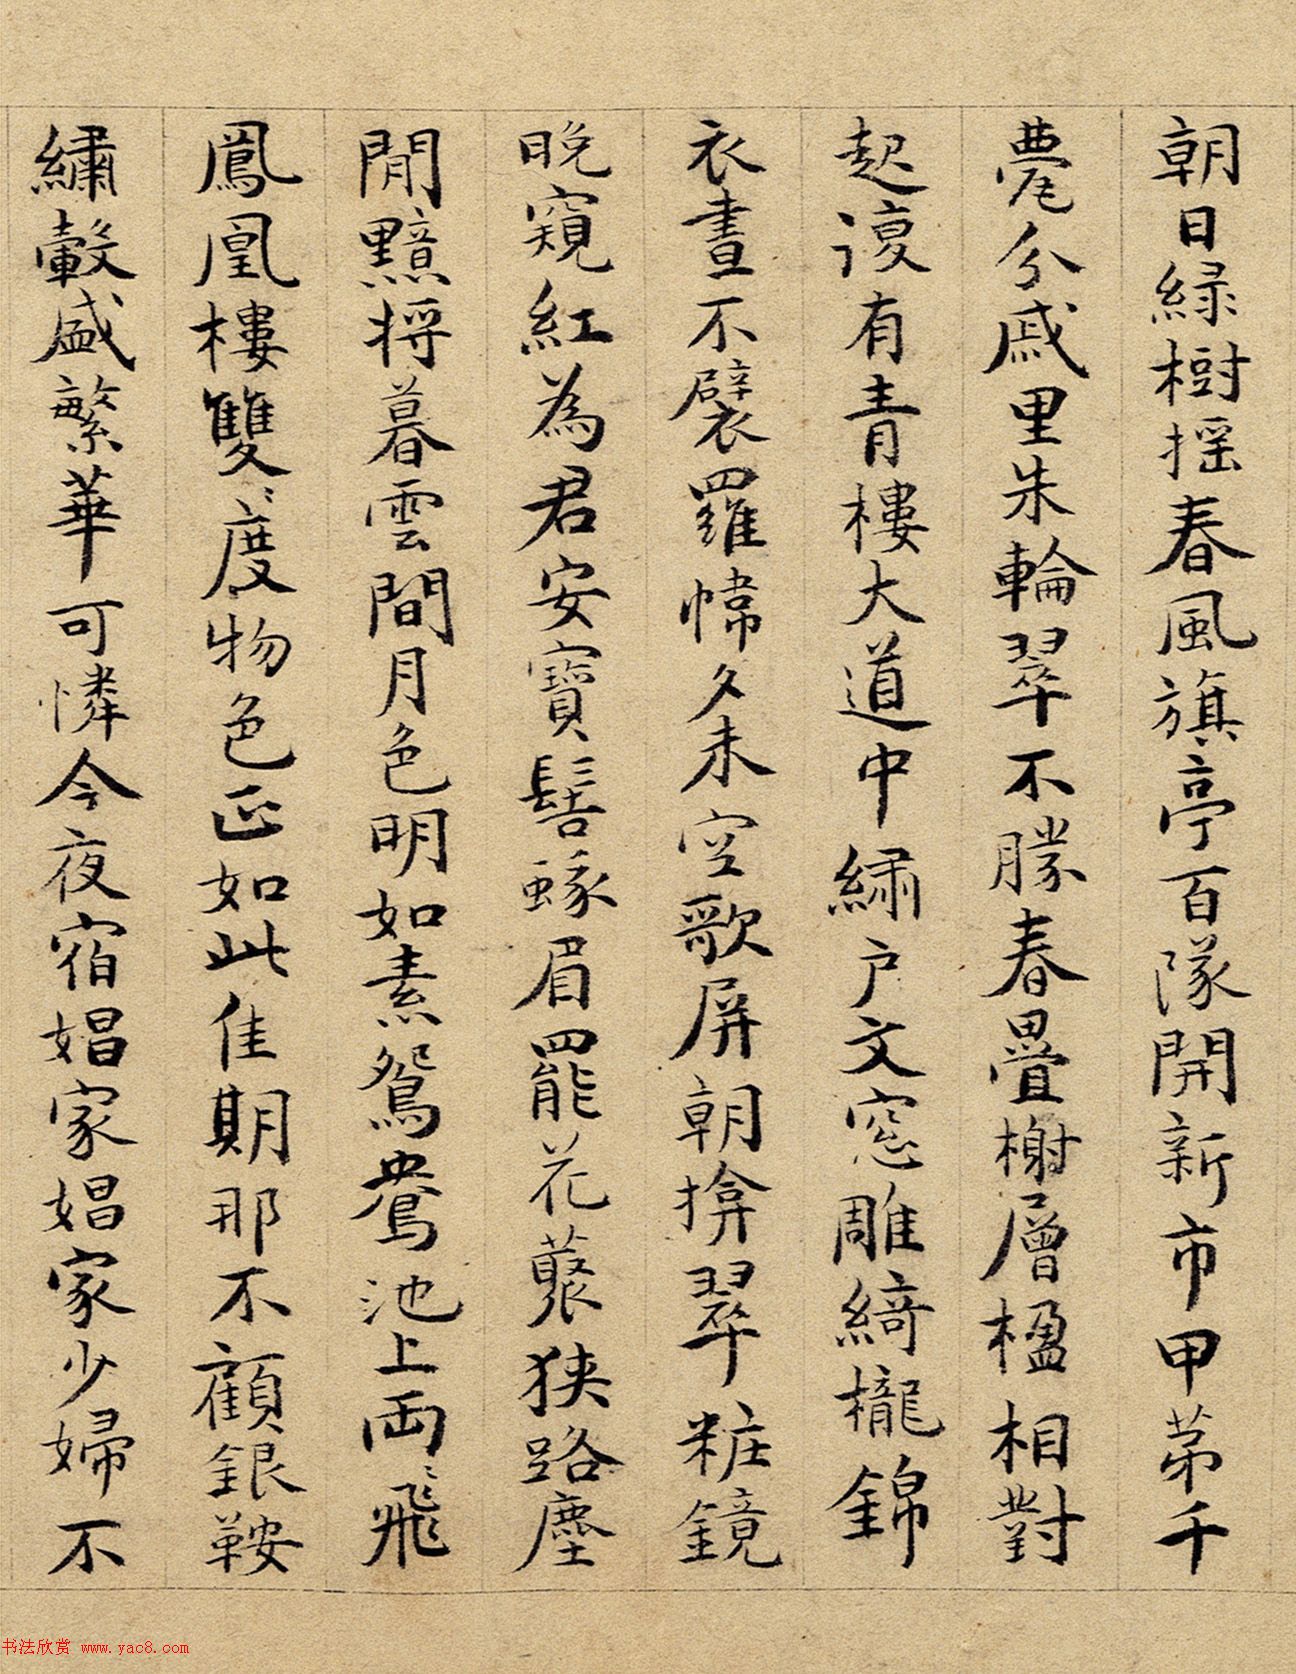 朝日緑樹揺春風旗亭百隊開新市甲苐千
甍分戚里朱輪翠不勝春疊榭層楹相對
起復有青樓大道中繡户文窓雕綺櫳錦
衣晝不襞羅幃夕未空歌屏朝掩翠粧鏡
晚窺紅為君安寶髻蛾眉罷花藂狭路塵
間黯将暮雲間月色明如素鴛鴦池上兩〻飛
鳳凰樓雙〻度物色正如此佳期那不顧銀鞍
繡轂盛繁華可憐今夜宿娼家娼家少婦不
书法欣赏 www.yac8.com